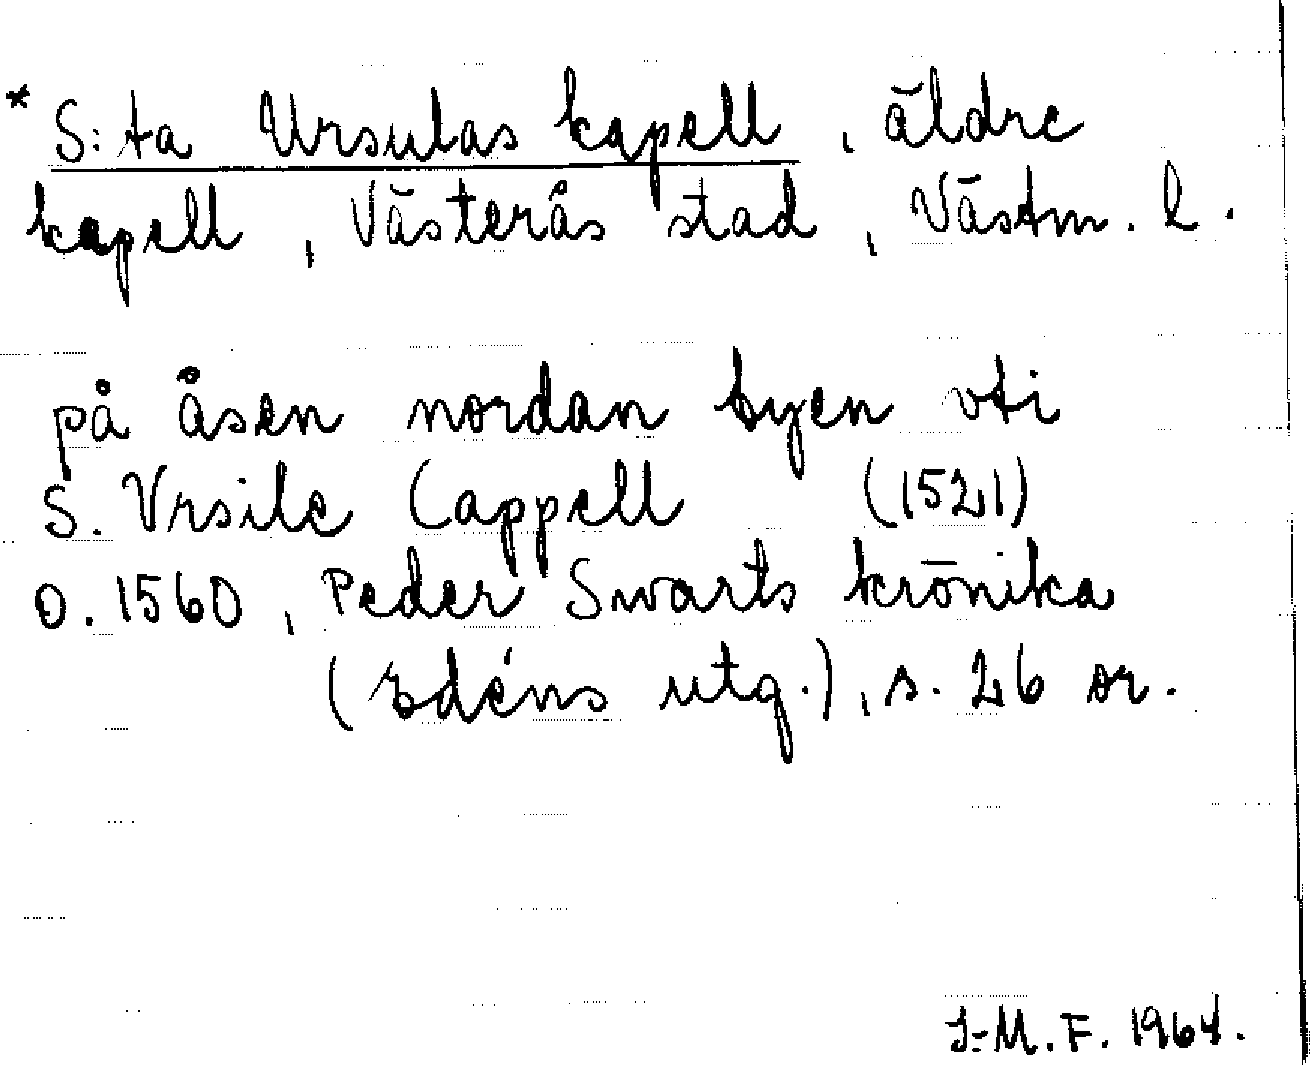 * S:ta Ursulas kapell, äldre
kapell, Västerås stad, Västm. l.
på åsen nordan byen vti
S. Vrsile Cappell (1521)
o. 1560, Peder Swarts krönika
(Edéns utg.), s. 26 or.
I-M. F. 1964.